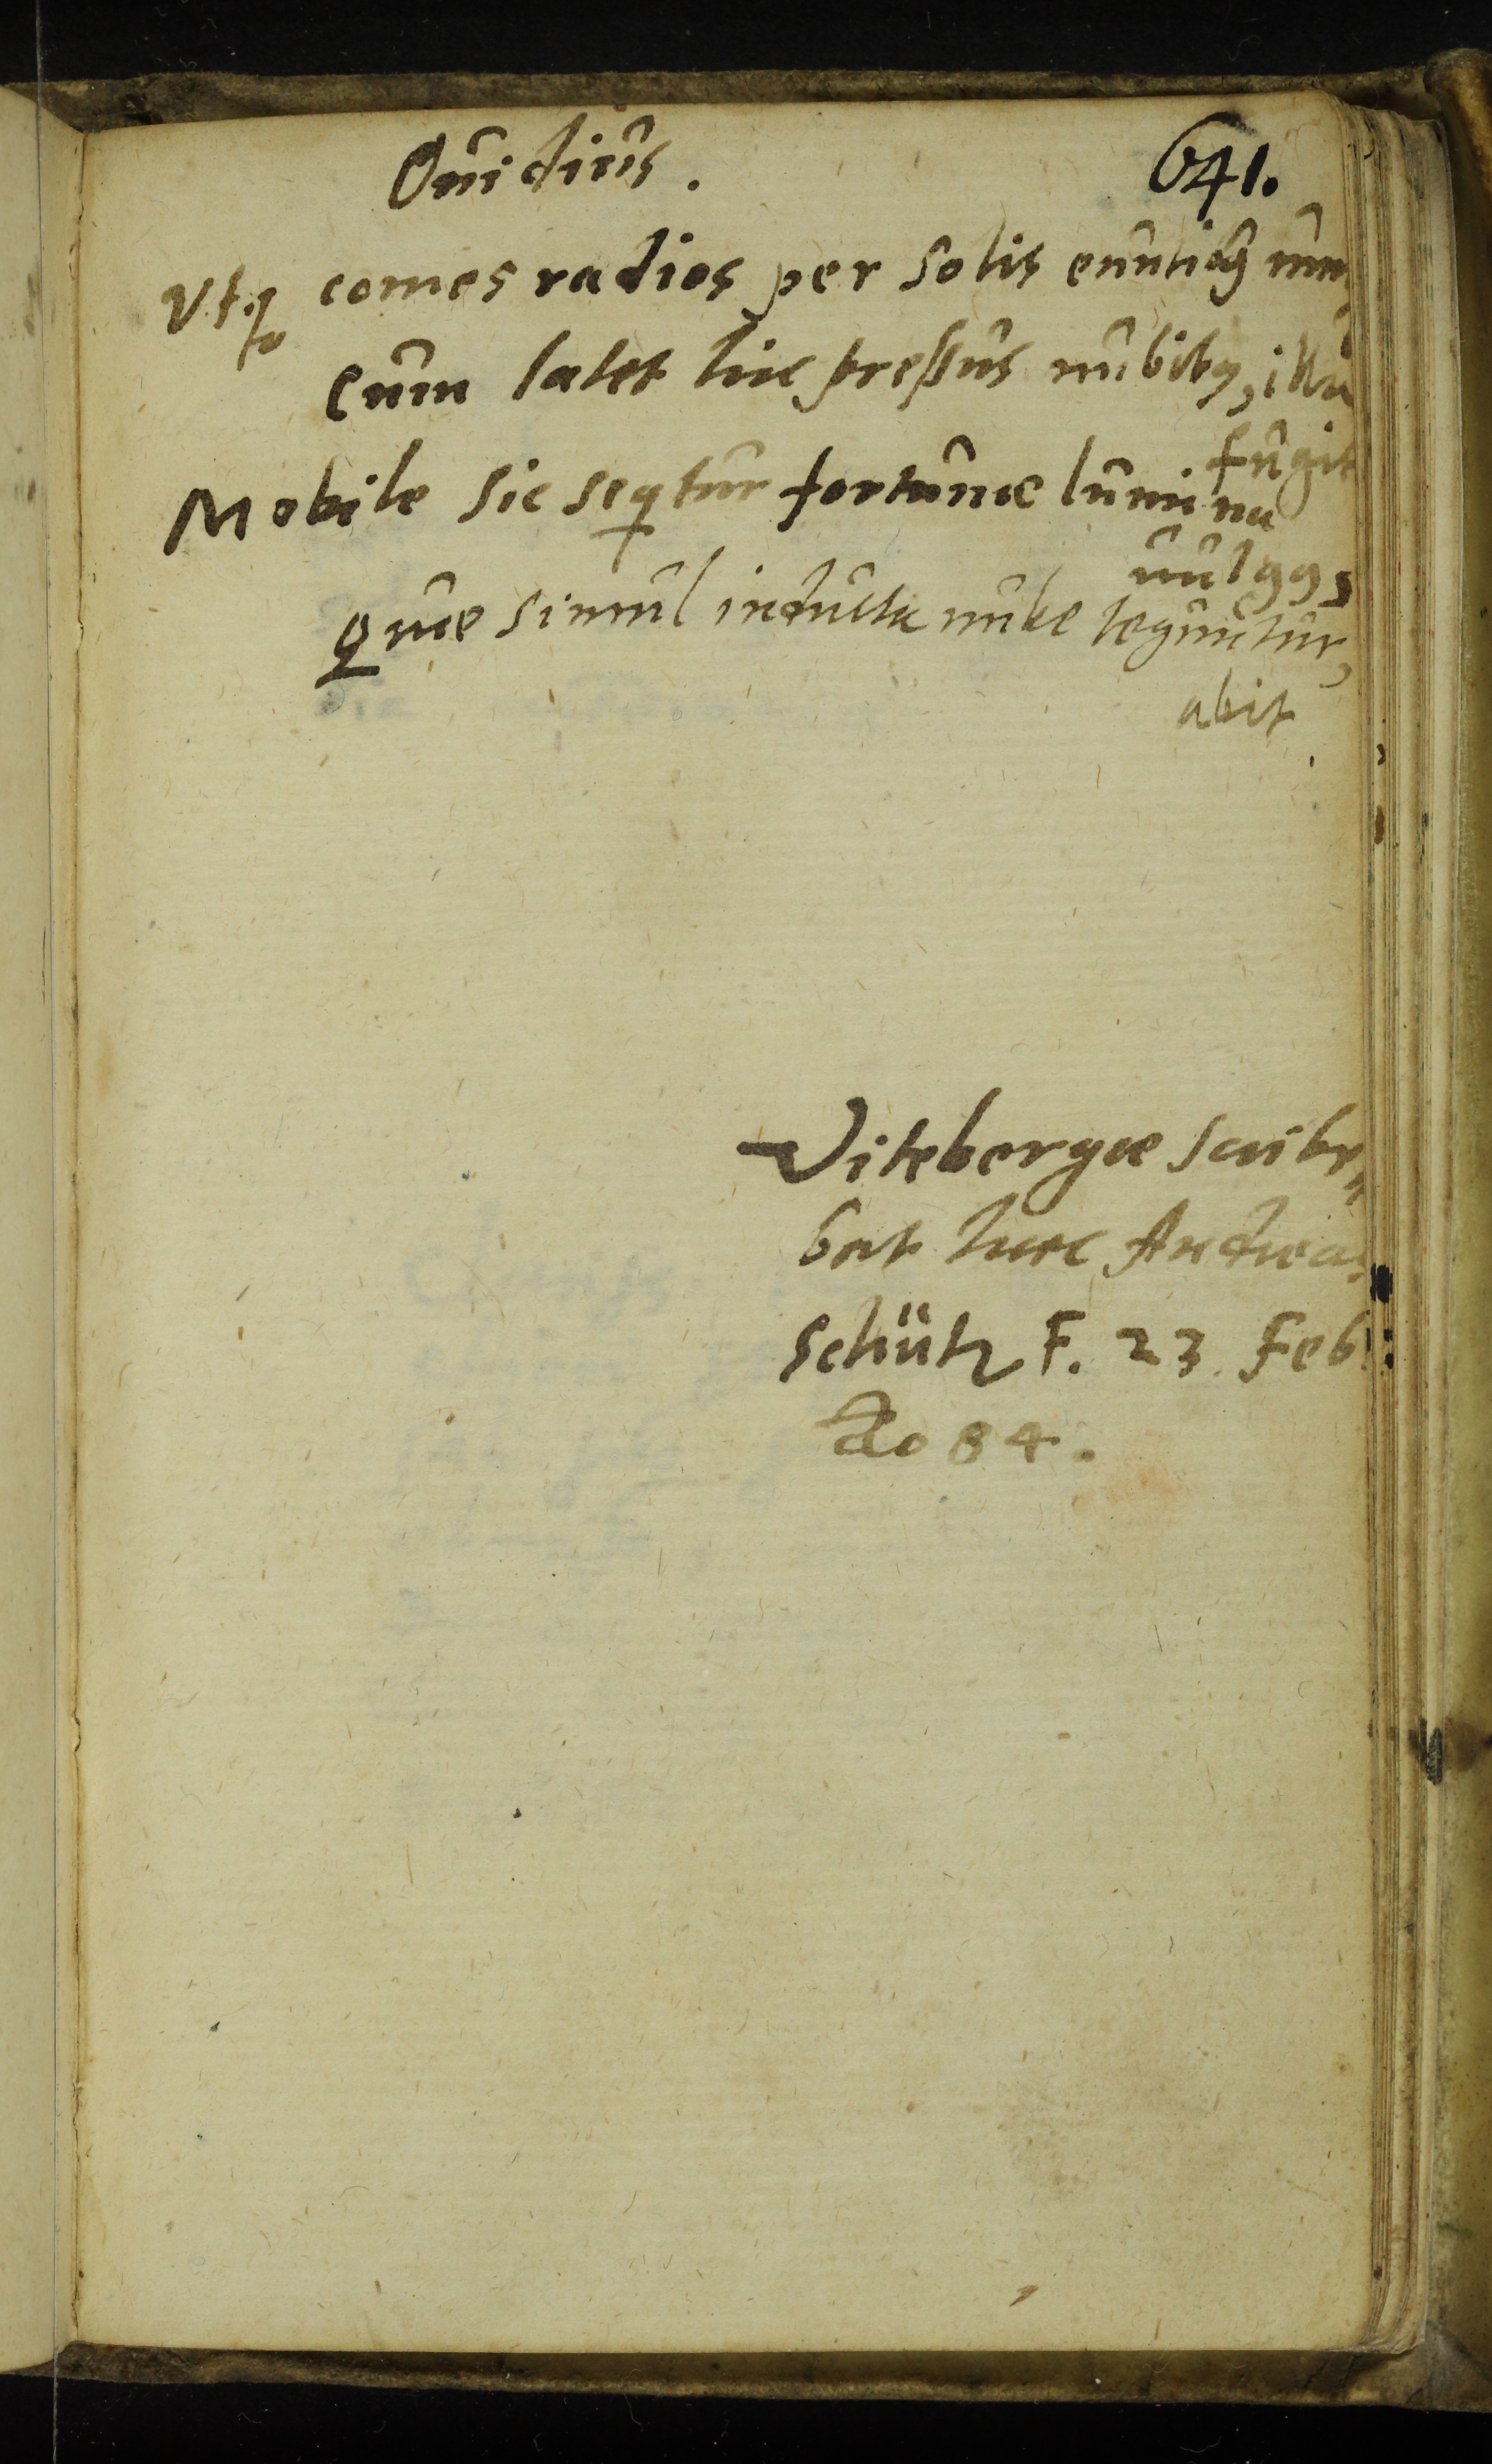 Ouidius.
641.
Vtq₃ comes radios per solis euntiq₃ um
Cum latet hic preßus nubibq₃, illa
fugit
Mobile sic seqtur fortunae lumina
uulgqs
quae simul inducta nube teguntur,
abit
Vitebergae scribe„
bat haec Andreas
Schütz F. 23. Feb:
Ao 84.